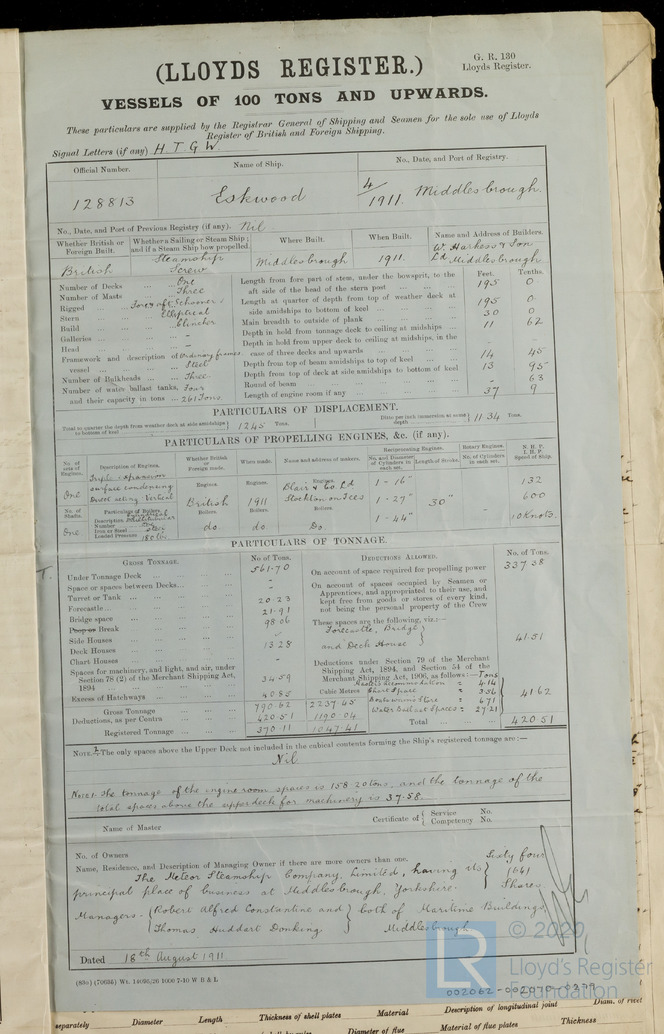 G. R. 130
Lloyds Register.
(LLOYDS REGISTER.)
VESSELS OF 100 TONS AND UPWARDS.
These particulars are supplied by the Registrar General of Shipping and Seamen for the sole use of Lloyds
Register of British and Foreign Shipping.
Signal Letters (if any) H.T.G.W.
Official Number. Name of Ship. No., Date, and Port of Registry.
128813 Eskwood 4/1911. Middlesbrough.
No., Date, and Port of Previous Registry (if any). Nil
Whether British or Foreign Built. Whether a Sailing or Steam Ship; and if a Steam Ship how propelled. Where Built. When Built. Name and Address of Builders.
British Steamship Screw Middlesbrough 1911. W. Harkess & Son Ld Middlesbrough
Number of Decks ... One
Number of Masts ... Three
Rigged ... Fore & aft Schooner
Stern ... Elliptical
Build ... Clincher
Galleries ... –
Head ... –
Framework and description of vessel ... Ordinary frames Steel
Number of Bulkheads ... Three
Number of water ballast tanks, and their capacity in tons Four – 261 Tons
Feet. Tenths.
Length from fore part of stem, under the bowsprit, to the aft side of the head of the stern post 195 0
Length at quarter of depth from top of weather deck at side amidships to bottom of keel 195 0
Main breadth to outside of plank 30 0
Depth in hold from tonnage deck to ceiling at midships 11 62
Depth in hold from upper deck to ceiling at midships, in the case of three decks and upwards -
Depth from top of beam amidships to top of keel 14 45
Depth from top of deck at side amidships to bottom of keel 13 95
Round of beam - 63
Length of engine room if any 37 9
PARTICULARS OF DISPLACEMENT.
Total to quarter the depth from weather deck at side amidships to bottom of keel 1245 Tons. Ditto per inch immersion at same depth 11 34 Tons.
PARTICULARS OF PROPELLING ENGINES, &c. (if any).
No. of sets of Engines. Description of Engines. Whether British or Foreign made. When made. Name and address of makers. Reciprocating Engines. Rotary Engines. N. H. P. I. H. P. Speed of Ship.
No. and Diameter of Cylinders in each set. Length of Stroke. No. of Cylinders in each set.
One Triple expansion surface condensing Direct acting Vertical
Engines. British
Engines. 1911
Engines. Blair & Co. Ld Stockton on Tees
1 - 16"
1 - 27"
1 - 44"
30"
132
600
10 Knots.
No. of Shafts. Particulars of Boilers. Boilers. Boilers. Boilers.
One. Description
Number One
Iron or Steel Steel
Loaded Pressure 180 lbs
do. do Do
PARTICULARS OF TONNAGE.
GROSS TONNAGE. No. of Tons. DEDUCTIONS ALLOWED. No. of Tons.
Under Tonnage Deck ... 561.70
Space or spaces between Decks ... -
Turret or Tank ... -
Forecastle ... 20.23
Bridge space ... 21.91
Poop or Break ... 98.06
Side Houses ...
Deck Houses ... 13.28
Chart Houses ...
Spaces for machinery, and light, and air, under Section 78 (2) of the Merchant Shipping Act, 1894 34.59
Excess of Hatchways ... 40.85
Gross Tonnage 790.62 2237.45
Deductions, as per Contra 420.51 1190.04
Registered Tonnage 370.11 1047.41
On account of space required for propelling power 337.58
On account of spaces occupied by Seamen or Apprentices, and appropriated to their use, and kept free from goods or stores of every kind, not being the personal property of the Crew
These spaces are the following, viz.:—
Forecastle, Bridge, and Deck House 41.51
Deductions under Section 79 of the Merchant Shipping Act, 1894, and Section 54 of the Merchant Shipping Act, 1906, as follows:—Tons
Master's Accommodation = 4.14
Cubic Metres Chart Space = 3.56
Boatswain's Store = 6.71
Water Ballast Spaces = 27.21
41.62
Total ... 420.51
NOTE 2.—The only spaces above the Upper Deck not included in the cubical contents forming the Ship's registered tonnage are:—
Nil.
Note 1. The tonnage of the engine room spaces is 158.20 tons, and the tonnage of the
total spaces above the upper deck for machinery is 37.58.
Name of Master Certificate of { Service No. Competency No.
No. of Owners
Name, Residence, and Description of Managing Owner if there are more owners than one.
The Meteor Steamship Company, Limited, having its
principal place of business at Middlesbrough, Yorkshire.
Sixty four
Shares
Managers - Robert Alfred Constantine and Thomas Huddart Donking } both of Maritime Buildings, Middlesbrough
Dated 18th August 1911
(89s) (70685) Wt. 14095/26 1000 7-10 W B & L
© 2020
LR
Lloyd's Register
Foundation
002062-002070-0279
separately Diameter Length Thickness of shell plates Material Description of longitudinal joint Diam. of rivet
Diameter of flue Material of flue plates Thickness